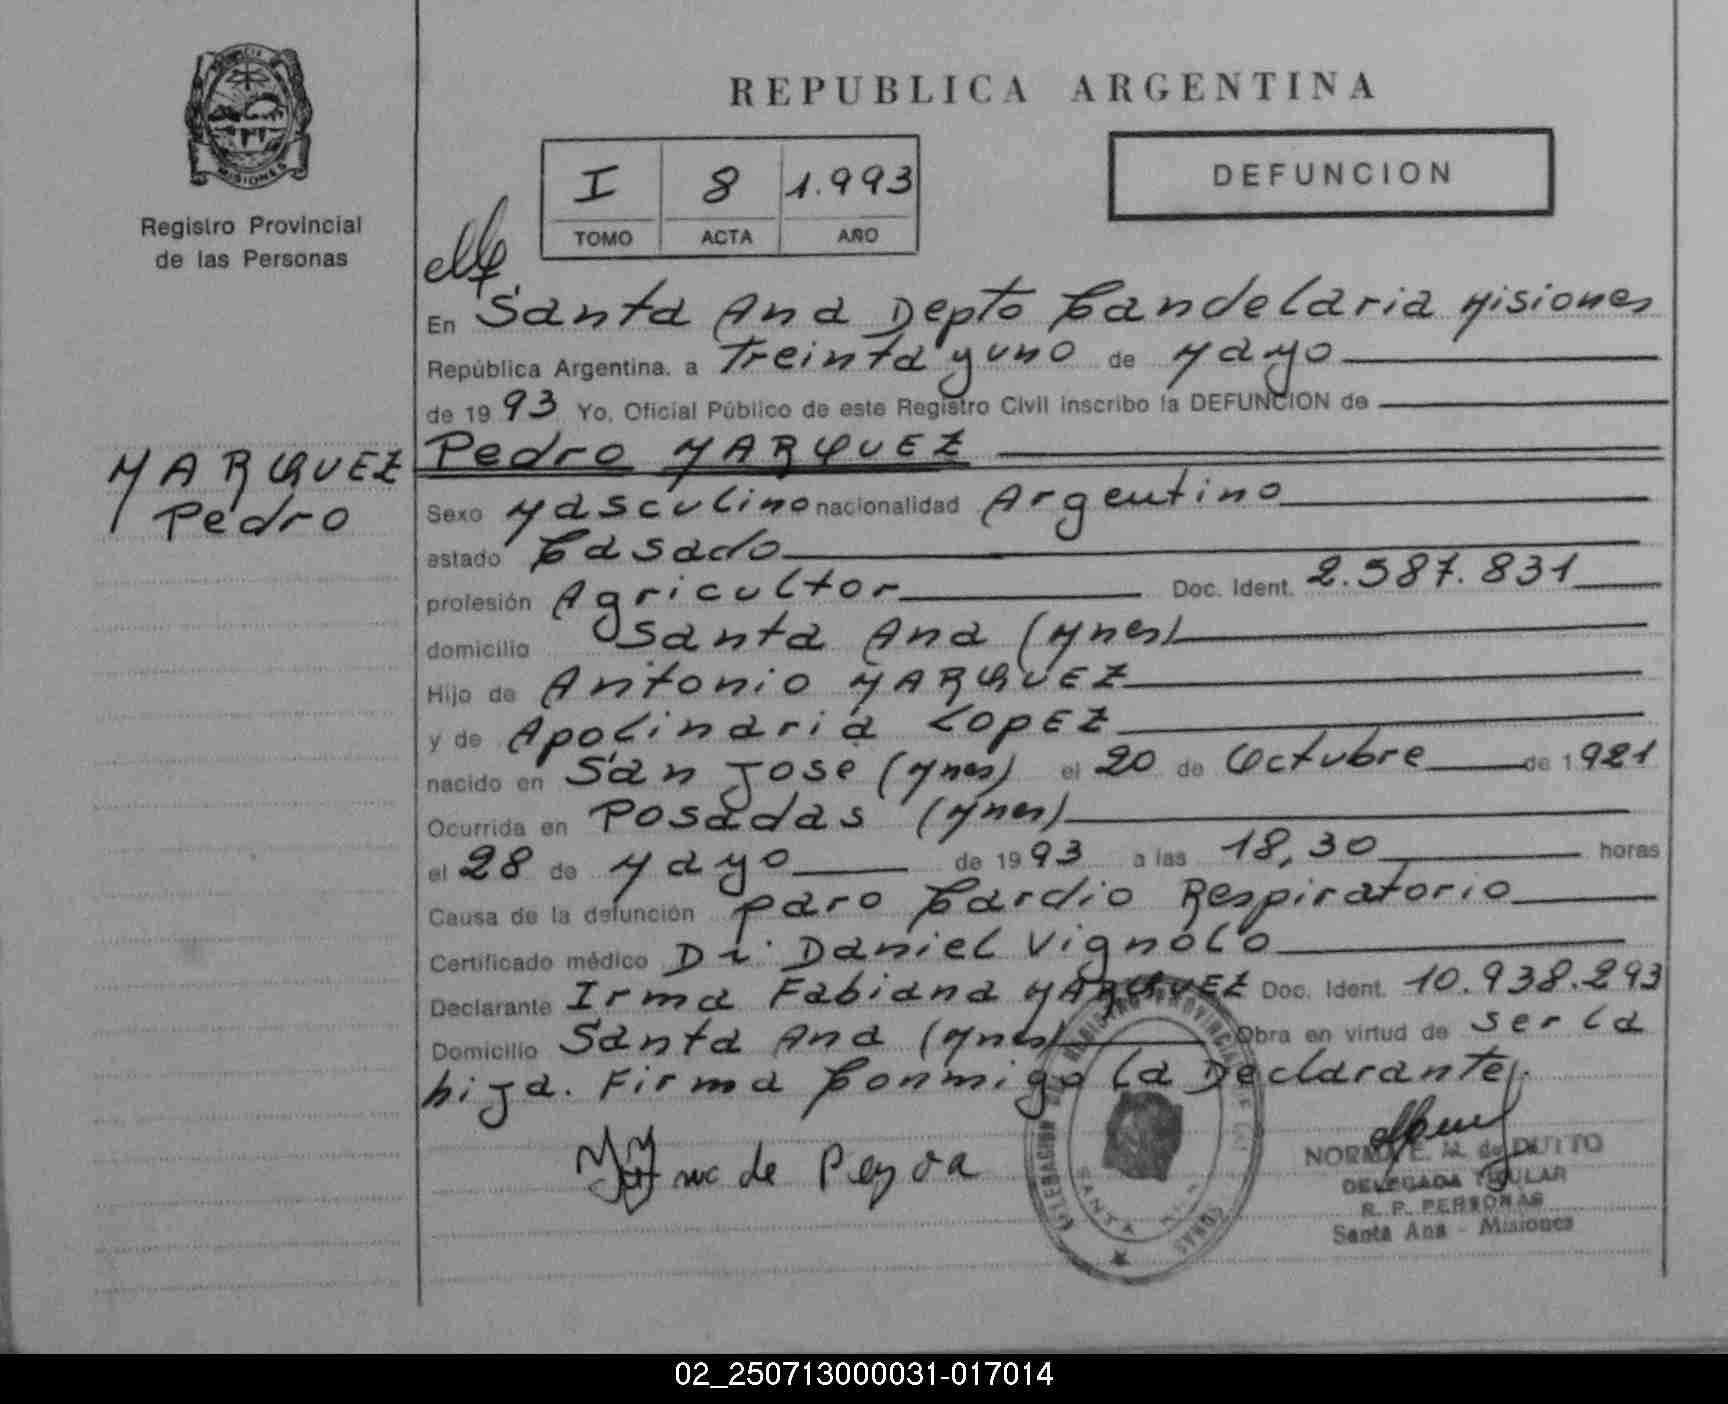 REPUBLICA ARGENTINA
PROVINCIA DE
MISIONES
Registro Provincial
de las Personas
I 8 1.993
TOMO ACTA AÑO
DEFUNCION
En Santa Ana Depto Candelaria Misiones
República Argentina. a Treinta y uno de Mayo
de 1993 Yo, Oficial Público de este Registro Civil inscribo la DEFUNCION de
MARQUEZ
Pedro
Pedro MARQUEZ
Sexo Masculino nacionalidad Argentino
estado Casado
profesión Agricultor Doc. Ident. 2.587.831
domicilio Santa Ana (Mnes)
Hijo de Antonio MARQUEZ
y de Apolinaria LOPEZ
nacido en San Jose (Mnes) el 20 de Octubre de 1921
Ocurrida en Posadas (Mnes)
el 28 de Mayo de 1993 a las 18,30 horas
Causa de la defunción paro Cardio Respiratorio
Certificado médico Dr. Daniel Vignolo
Declarante Irma Fabiana MARQUEZ Doc. Ident. 10.938.293
Domicilio Santa Ana (Mnes) Obra en virtud de ser la
hija. Firma Conmigo la Declarante.
de
REGISTRO PROVINCIAL DE LAS
SANTA ANA
NORMA E. M. de DUTTO
DELEGADA TITULAR
R. P. PERSONAS
Santa Ana - Misiones
02_250713000031-017014